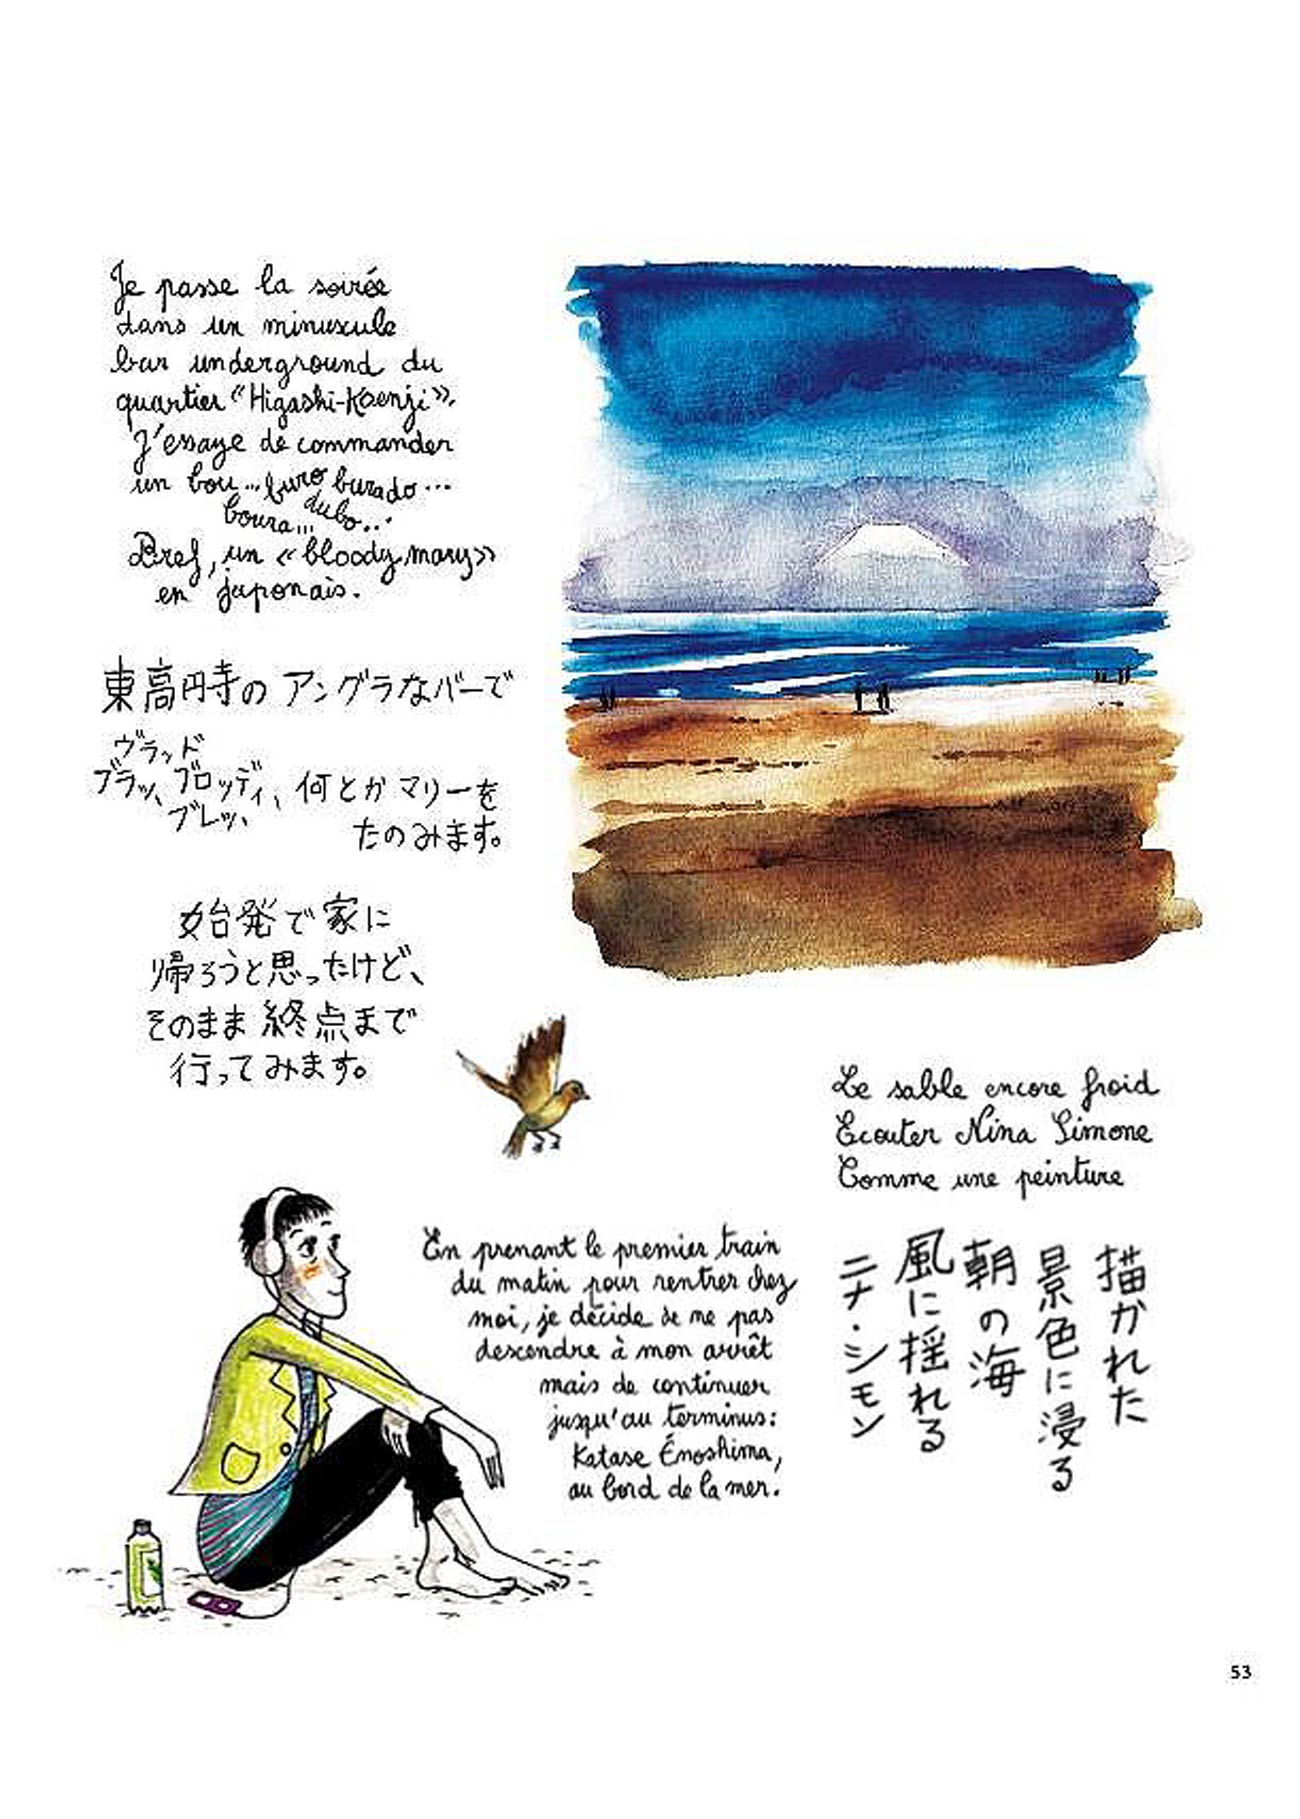 Je passe la soirée
dans un minuscule
bar underground du
quartier "Higashi-Koenji".
J'essaye de commander
un bou... buro burado...
boura... dubo...
Bref, un « bloody mary »
en japonais.
東高円寺の アングラなバーで
ヴラッド
ブラッ、ブロッディ、何とか マリーを
ブレッ、
たのみます。
始発で家に
帰ろうと思ったけど、
そのまま 終点まで
行ってみます。
Le sable encore froid
Ecouter Nina Simone
Comme une peinture
En prenant le premier train
du matin pour rentrer chez
moi, je décide de ne pas
descendre à mon arrêt
mais de continuer
jusqu'au terminus:
Katase Énoshima,
au bord de la mer.
描かれた
景色に浸る
朝の海
風に揺れる
ニナ・シモン
53